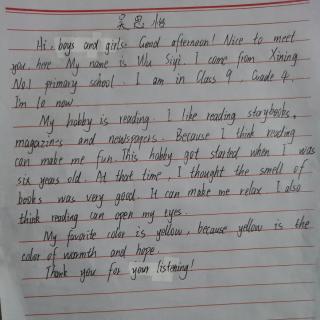 吴思怡
Hi, boys and girls. Good afternoon! Nice to meet
you here. My name is Wu Siyi. I come from Xining
No.1 primary school. I am in Class 9, Grade 4.
I'm 10 now.
My hobby is reading. I like reading storybooks,
magazines and newspapers. Because I think reading
can make me fun. This hobby got started when I was
six years old. At that time, I thought the smell of
books was very good. It can make me relax. I also
think reading can open my eyes.
My favorite color is yellow, because yellow is the
color of warmth and hope.
Thank you for your listening!